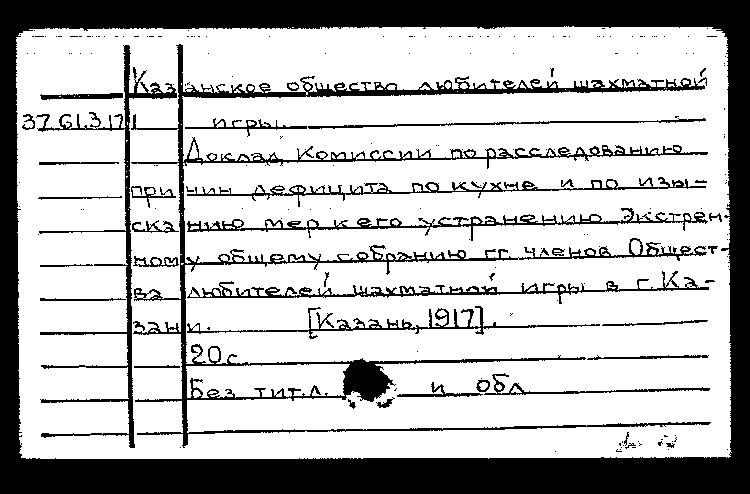 Казанское общество любителей шахматной
37.61.3.171 игры.
Доклад Комиссии по расследованию
причин дефицита по кухне и по изы-
сканию мер к его устранению Экстрен-
ному общему собранию гг. членов Общест-
ва любителей шахматной игры в г. Ка-
зани. [Казань, 1917].
20 с
Без тит.л. и обл